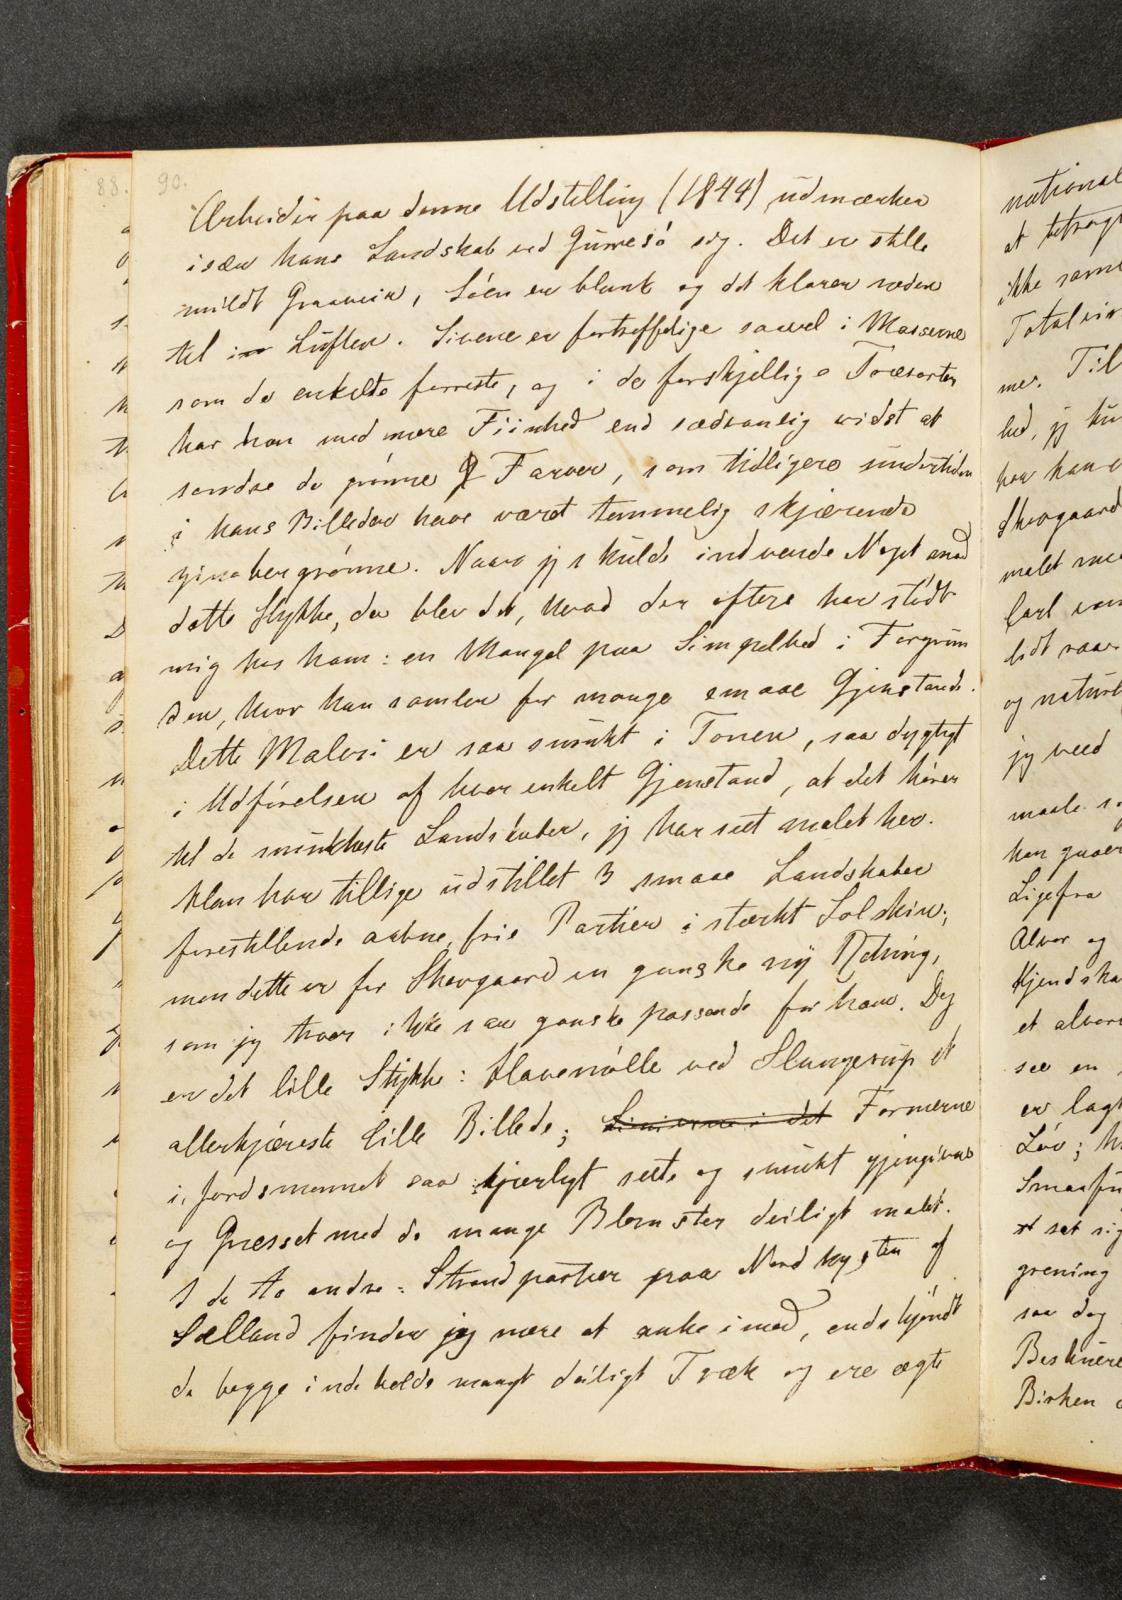 90.
Arbeider paa denne Udstilling (1844) udmærker
især hans Landskab ved Gurresö sig. Det er stille
mildt Graaveir, Söen er blank og det klarer neden
til i Luften. Sivene er fortræffelige saavel i Masserne
som de enkelte forreste, og i de forskjellige Træsorter
har han med mere Fiinhed end sædvanlig vidst at
sondre de grönne Farver, som tidligere undertiden
i hans Billeder have været temmelig skjærende
zinobergrönne. Naar jeg skulde indvende Noget mod
dette Stykke, da blev det, hvad der oftere har stödt
mig hos ham: en Mangel paa Simpelhed i Forgrun
den, hvor han samler for mange smaae Gjenstande.
Dette Maleri er saa smukt i Tonen, saa dygtigt
i Udförelsen af hver enkelt Gjenstand, at det hörer
til de smukkeste Landskaber, jeg har seet malet her.
Han har tillige udstillet 3 smaae Landskaber
forestillende aabne, frie Partier i stærkt Solskin;
men dette er for Skovgaard en ganske ny Retning,
som jeg troer ikke saa ganske passende for ham. Dog
er det lille Stykke: Havemölle ved Slangerup et
allerkjæreste lille Billede; Linierne i det Formerne
i Jordsmonnet saa kjærligt seete og smukt gjengivne
og Græsset med de mange Blomster deiligt malet.
I de to andre: Strandpartier paa Nordkysten af
Sælland finder jeg mere at anke imod, endskjöndt
de begge indeholde mangt deiligt Træk og ere ægte
88.
national
ikke samme
mer. Til
har han
Skovgaard
malet
lidt
jeg veed
maale
Ligefra
Alvor og
Kjendska
see en
er lagt
Löv;
grening
saa dog
Birken